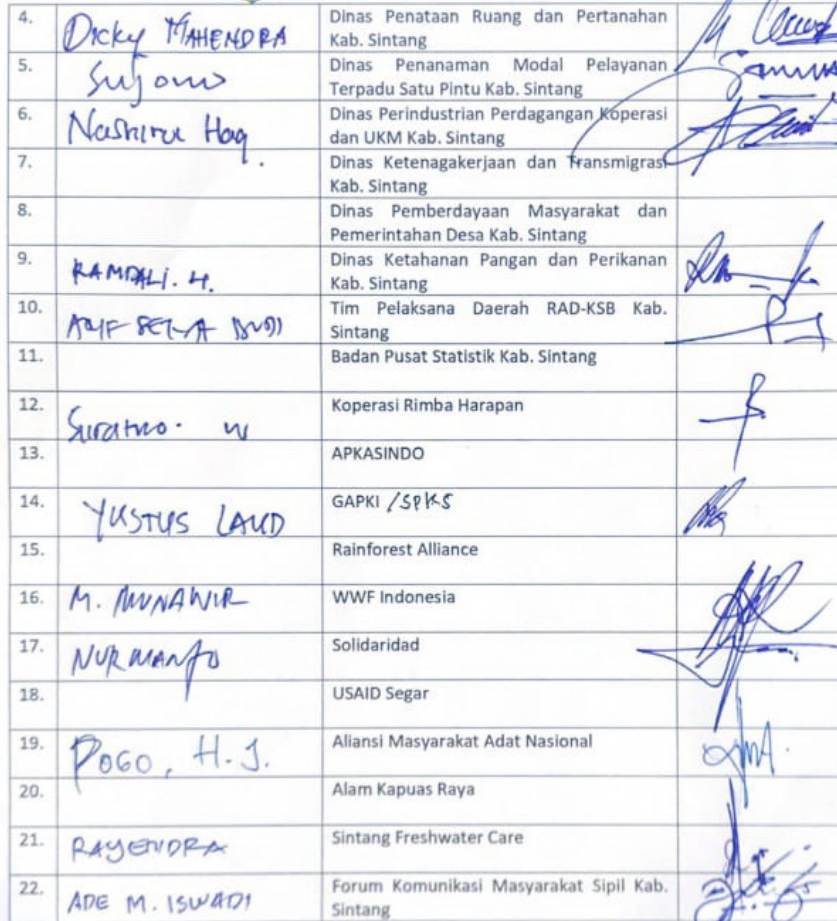 4. Dicky MAHENDRA Dinas Penataan Ruang dan Pertanahan
Kab. Sintang
5. Sujono Dinas Penanaman Modal Pelayanan
Terpadu Satu Pintu Kab. Sintang
6. Nashirul Haq. Dinas Perindustrian Perdagangan Koperasi
dan UKM Kab. Sintang
7. Dinas Ketenagakerjaan dan Transmigrasi
Kab. Sintang
8. Dinas Pemberdayaan Masyarakat dan
Pemerintahan Desa Kab. Sintang
9. RAMDALI. H. Dinas Ketahanan Pangan dan Perikanan
Kab. Sintang
10. ARIF SETIA BUDI Tim Pelaksana Daerah RAD-KSB Kab.
Sintang
11. Badan Pusat Statistik Kab. Sintang
12. Suratno. W Koperasi Rimba Harapan
13. APKASINDO
14. YUSTUS LAUD GAPKI /SPKS
15. Rainforest Alliance
16. M. MUNAWIR WWF Indonesia
17. NURMANTO Solidaridad
18. USAID Segar
19. POGO, H.J. Aliansi Masyarakat Adat Nasional
20. Alam Kapuas Raya
21. RAYENDRA Sintang Freshwater Care
22. ADE M. ISWADI Forum Komunikasi Masyarakat Sipil Kab.
Sintang